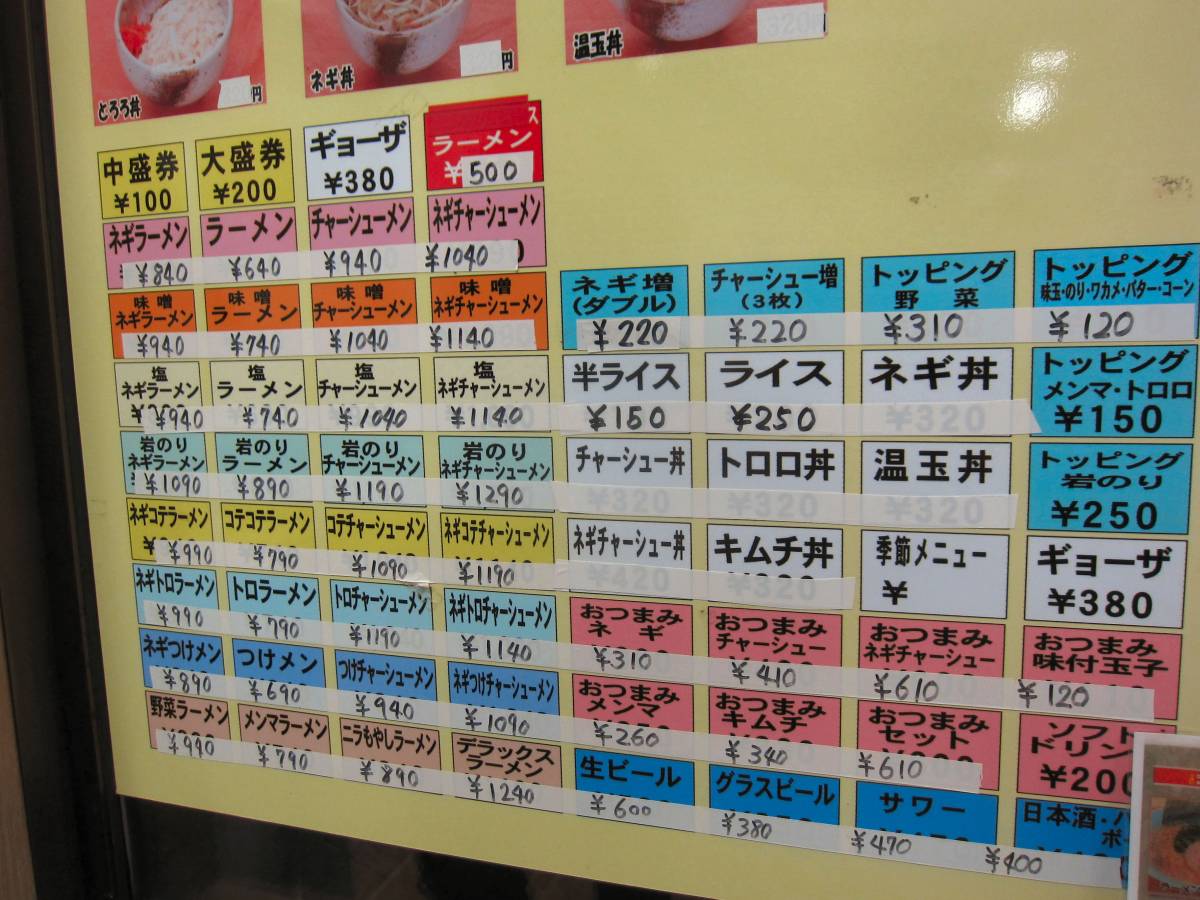 とろろ丼
円
ネギ丼
円
温玉丼
320円
中盛券
¥100
大盛券
¥200
ギョーザ
¥380
ス
ラーメン
¥500
ネギラーメン
¥840
ラーメン
¥640
チャーシューメン
¥940
ネギチャーシューメン
¥1040
味噌
ネギラーメン
¥940
味噌
ラーメン
¥740
味噌
チャーシューメン
¥1040
味噌
ネギチャーシューメン
¥1140
ネギ増
(ダブル)
¥220
チャーシュー増
(3枚)
¥220
トッピング
野菜
¥310
トッピング
味玉・のり・ワカメ・バター・コーン
¥120
塩
ネギラーメン
¥940
塩
ラーメン
¥740
塩
チャーシューメン
¥1040
塩
ネギチャーシューメン
¥1140
半ライス
¥150
ライス
¥250
ネギ丼
¥320
トッピング
メンマ・トロロ
¥150
岩のり
ネギラーメン
¥1090
岩のり
ラーメン
¥890
岩のり
チャーシューメン
¥1190
岩のり
ネギチャーシューメン
¥1290
チャーシュー丼
¥320
トロロ丼
¥320
温玉丼
¥320
トッピング
岩のり
¥250
ネギコテラーメン
¥990
コテコテラーメン
¥790
コテチャーシューメン
¥1090
ネギコテチャーシューメン
¥1190
ネギチャーシュー丼
¥420
キムチ丼
¥320
季節メニュー
¥
ギョーザ
¥380
ネギトロラーメン
¥990
トロラーメン
¥790
トロチャーシューメン
¥1190
ネギトロチャーシューメン
¥1140
おつまみ
ネギ
¥310
おつまみ
チャーシュー
¥410
おつまみ
ネギチャーシュー
¥610
おつまみ
味付玉子
¥120
ネギつけメン
¥890
つけメン
¥690
つけチャーシューメン
¥940
ネギつけチャーシューメン
¥1090
おつまみ
メンマ
¥260
おつまみ
キムチ
¥340
おつまみ
セット
¥610
ソフト
ドリン
¥200
野菜ラーメン
¥990
メンマラーメン
¥790
ニラもやしラーメン
¥890
デラックス
ラーメン
¥1240
生ビール
¥600
グラスビール
¥380
サワー
¥470
日本酒・
¥400
ラーメン